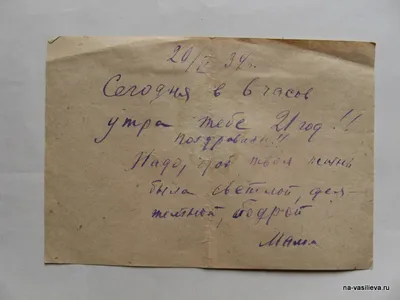 20/V 34 г.
Сегодня в 6 часов
утра тебе 21 год!!
поздравляю!!
Надо, чтоб твоя жизнь
была светлой, дея-
тельной, бодрой
Мама
na-vasilieva.ru